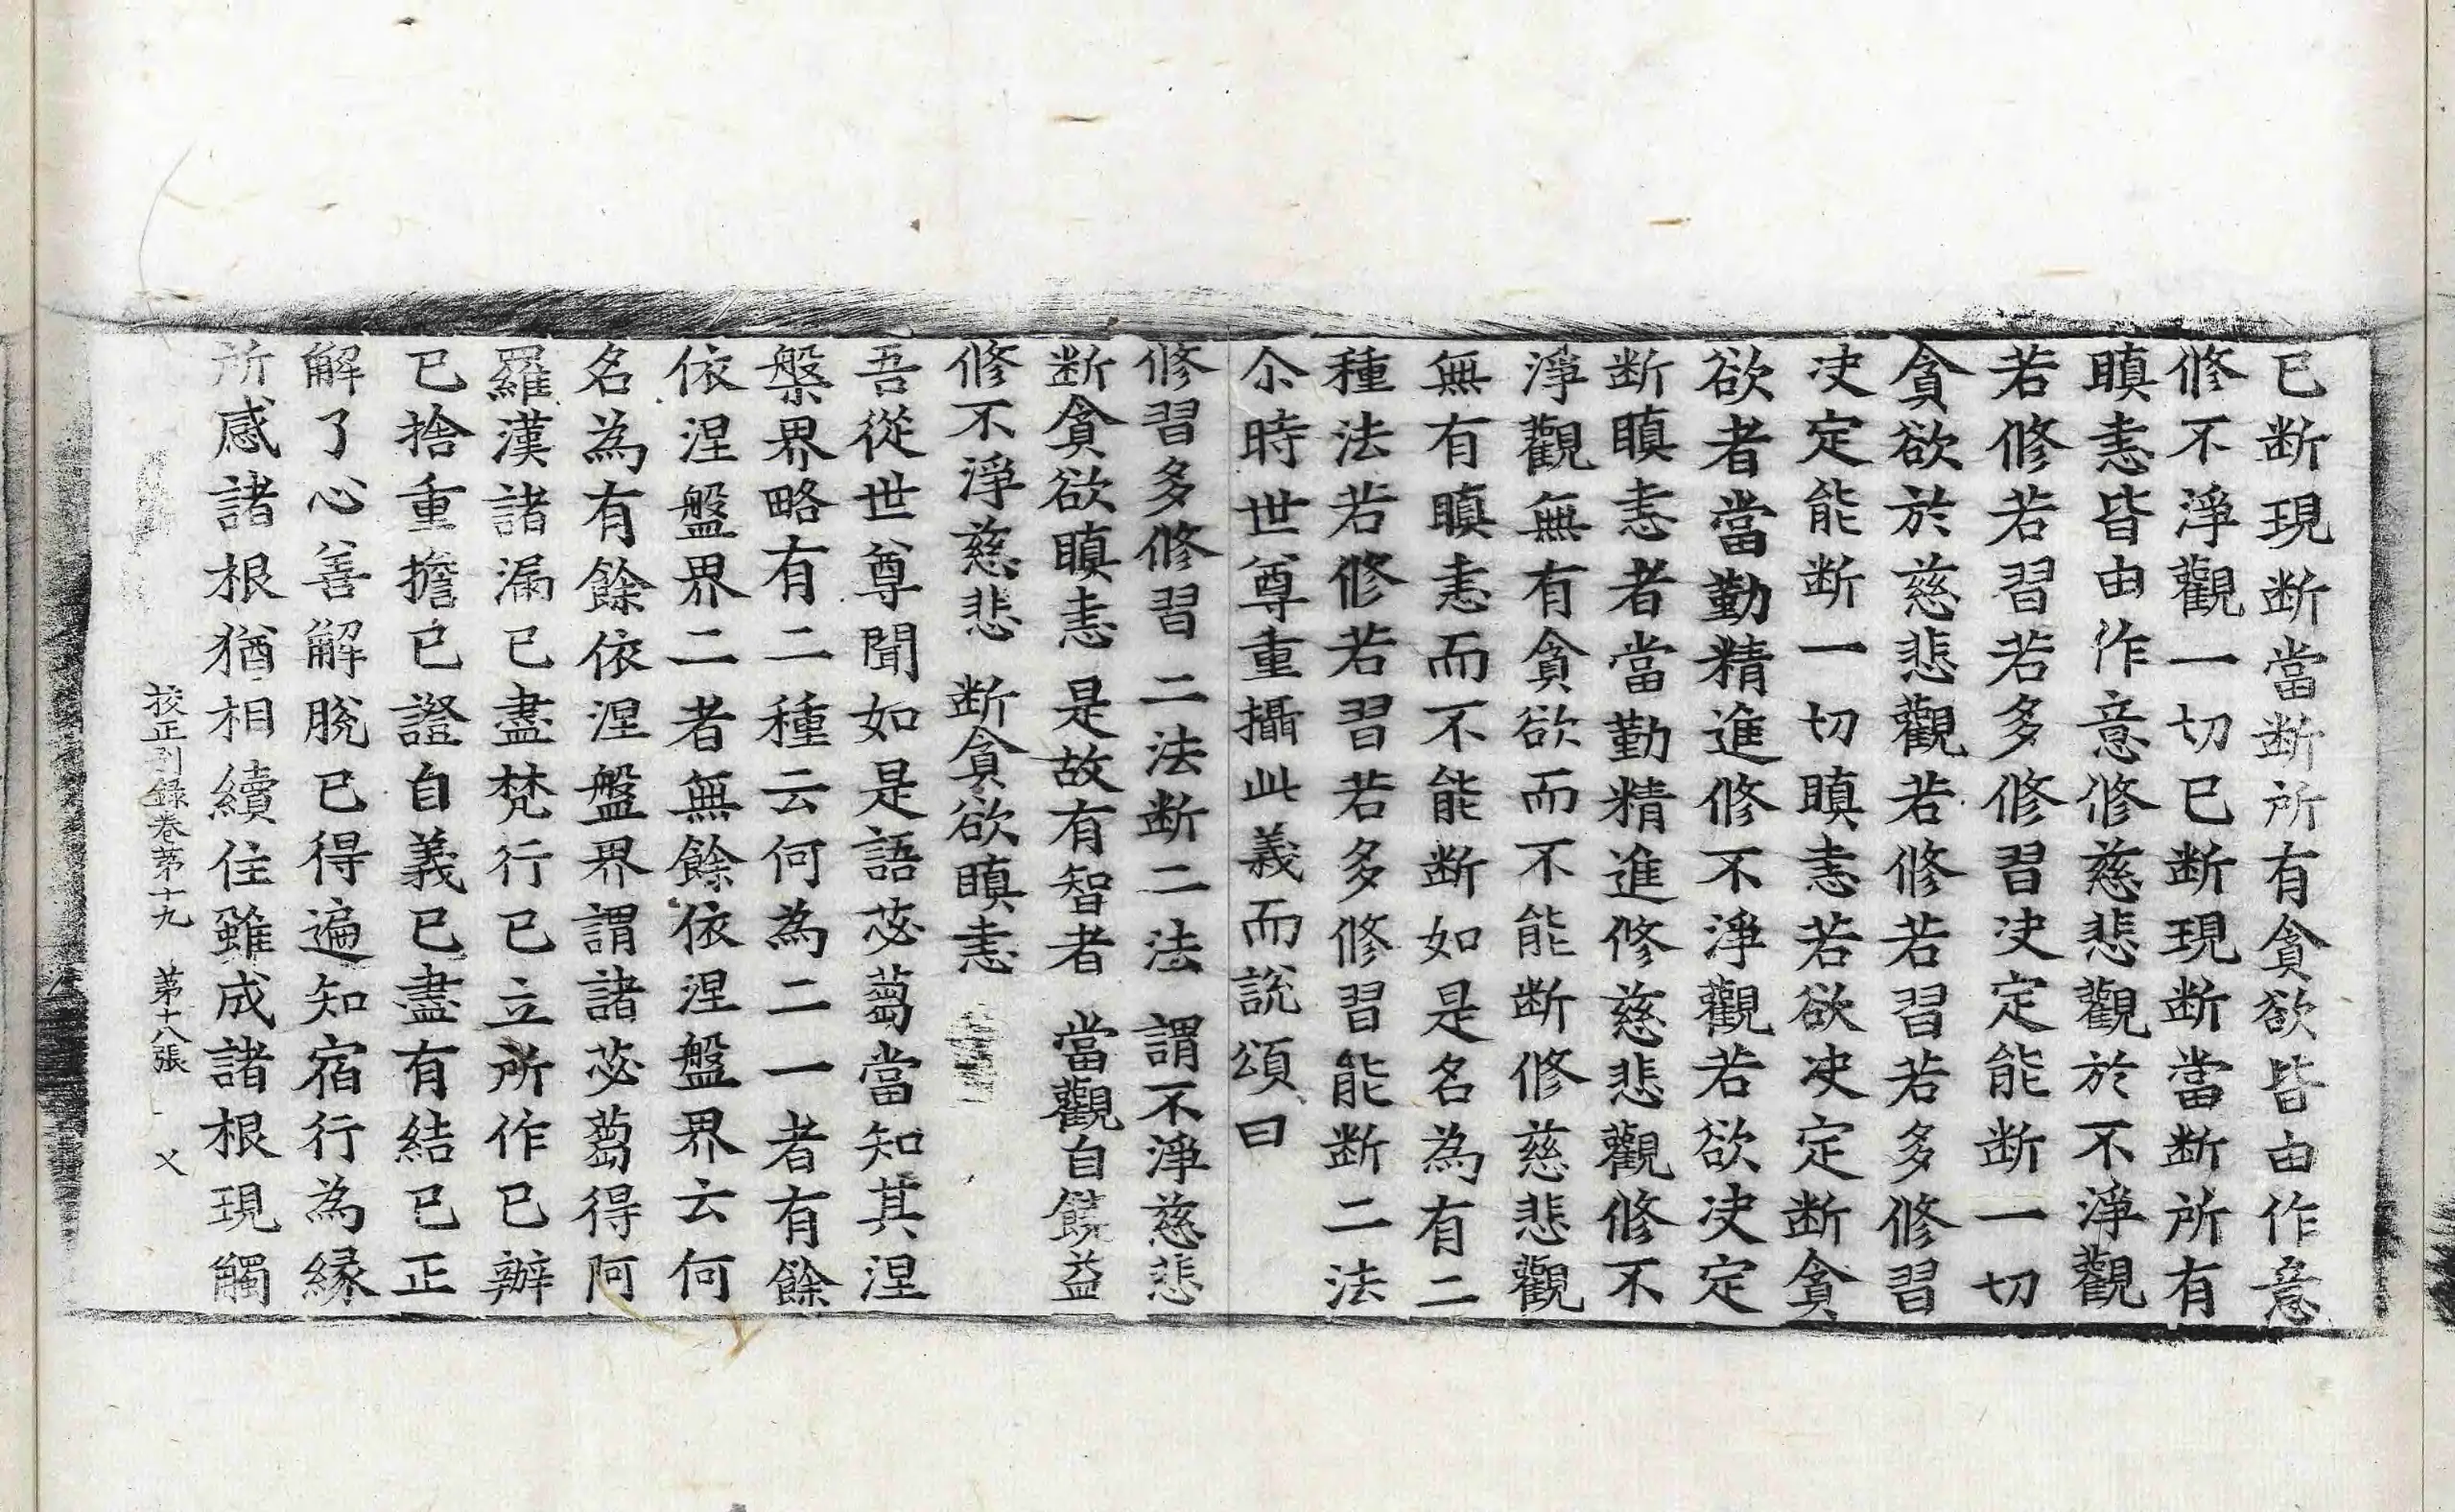 已断現断當断所有貪欲皆由作意
修不淨觀一切已断現断當断所有
瞋恚皆由作意修慈悲觀於不淨觀
若修若習若多修習决定能断一切
貪欲於慈悲觀若修若習若多修習
决定能断一切瞋恚若欲决定断貪
欲者當勤精進修不淨觀若欲决定
断瞋恚者當勤精進修慈悲觀修不
淨觀無有貪欲而不能断修慈悲觀
無有瞋恚而不能断如是名為有二
種法若修若習若多修習能断二法
尒時世尊重攝此義而說頌曰
修習多修習 二法断二法 謂不淨慈悲
断貪欲瞋恚 是故有智者 當觀自饒益
修不淨慈悲 断貪欲瞋恚
吾從世尊聞如是語苾蒭當知其涅
槃界略有二種云何為二一者有餘
依涅盤界二者無餘依涅盤界云何
名為有餘依涅盤界謂諸苾蒭得阿
羅漢諸漏已盡梵行已立所作已辦
已捨重擔已證自義已盡有結已正
解了心善解脫已得遍知宿行為緣
所感諸根猶相續住雖成諸根現觸
校正別錄卷第十九 第十八張 乂